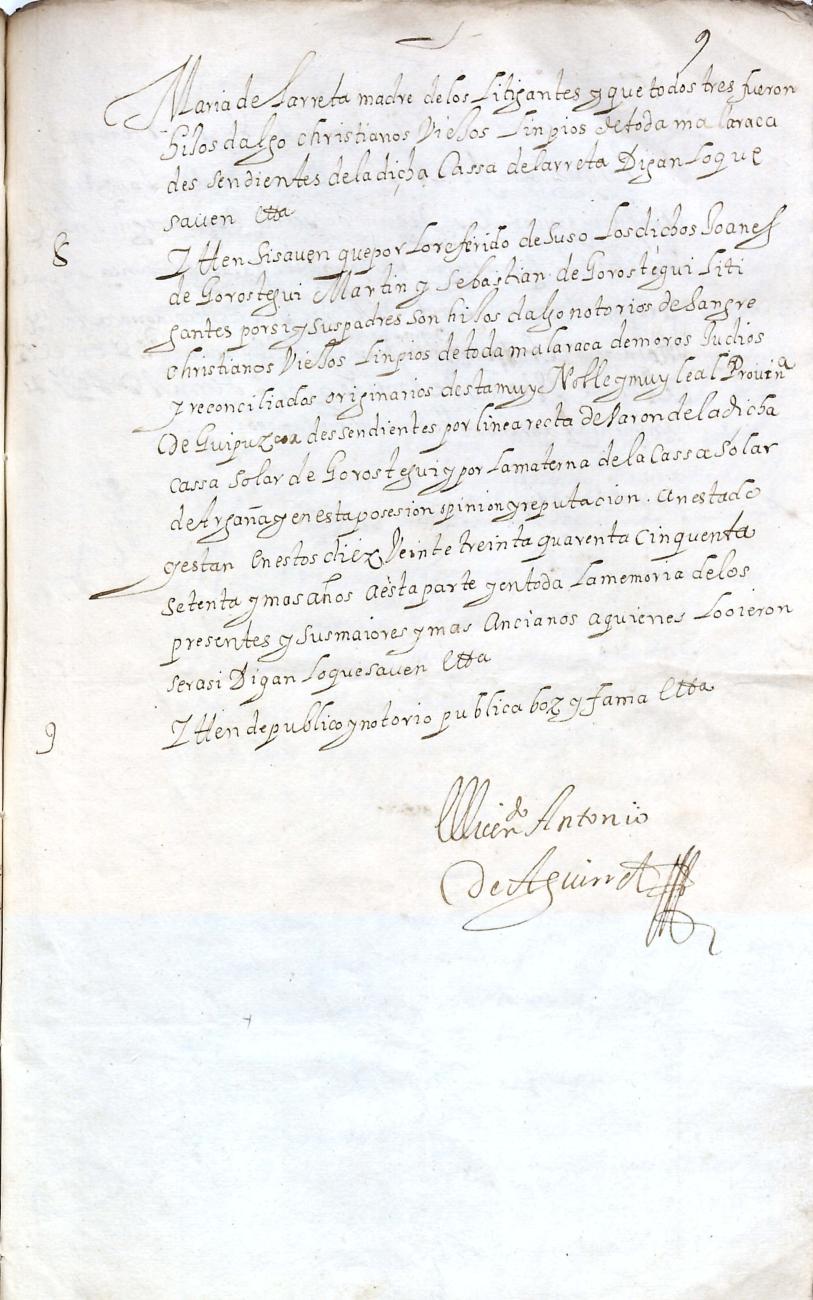 9
Maria de Larreta madre de los Litigantes y que todos tres fueron
hilos dalgo christianos Viejos Linpios de toda mala raca
des sendientes de la dicha Cassa de Larreta Digan Lo que
saven Etta
8
Y tten Si saven que por Lo referido de suso Los dichos Joanes
de Gorostegui Martin y Sebastian de Gorostegui Liti
gantes por si y sus padres son hilos dalgo notorios de Sangre
christianos Viejos Linpios de toda mala raca de moros Judios
y reconciliados originarios desta muy Noble y muy leal Provina
de Guipuzcoa dessendientes por linea recta de Varon de la dicha
Cassa Solar de Gorostegui y por La materna de la Cassa Solar
de Argaña y en esta posesion opinion y reputacion. an estado
y estan En estos diez Veinte treinta quarenta Cinquenta
setenta y mas años a esta parte y en toda La memoria de los
presentes y sus maiores y mas Ancianos a quienes Lo oieron
ser asi Digan Lo que saven Etta
9
Y tten de publico y notorio publica boz y fama Etta
Llicendo Antonio
de Aguirre